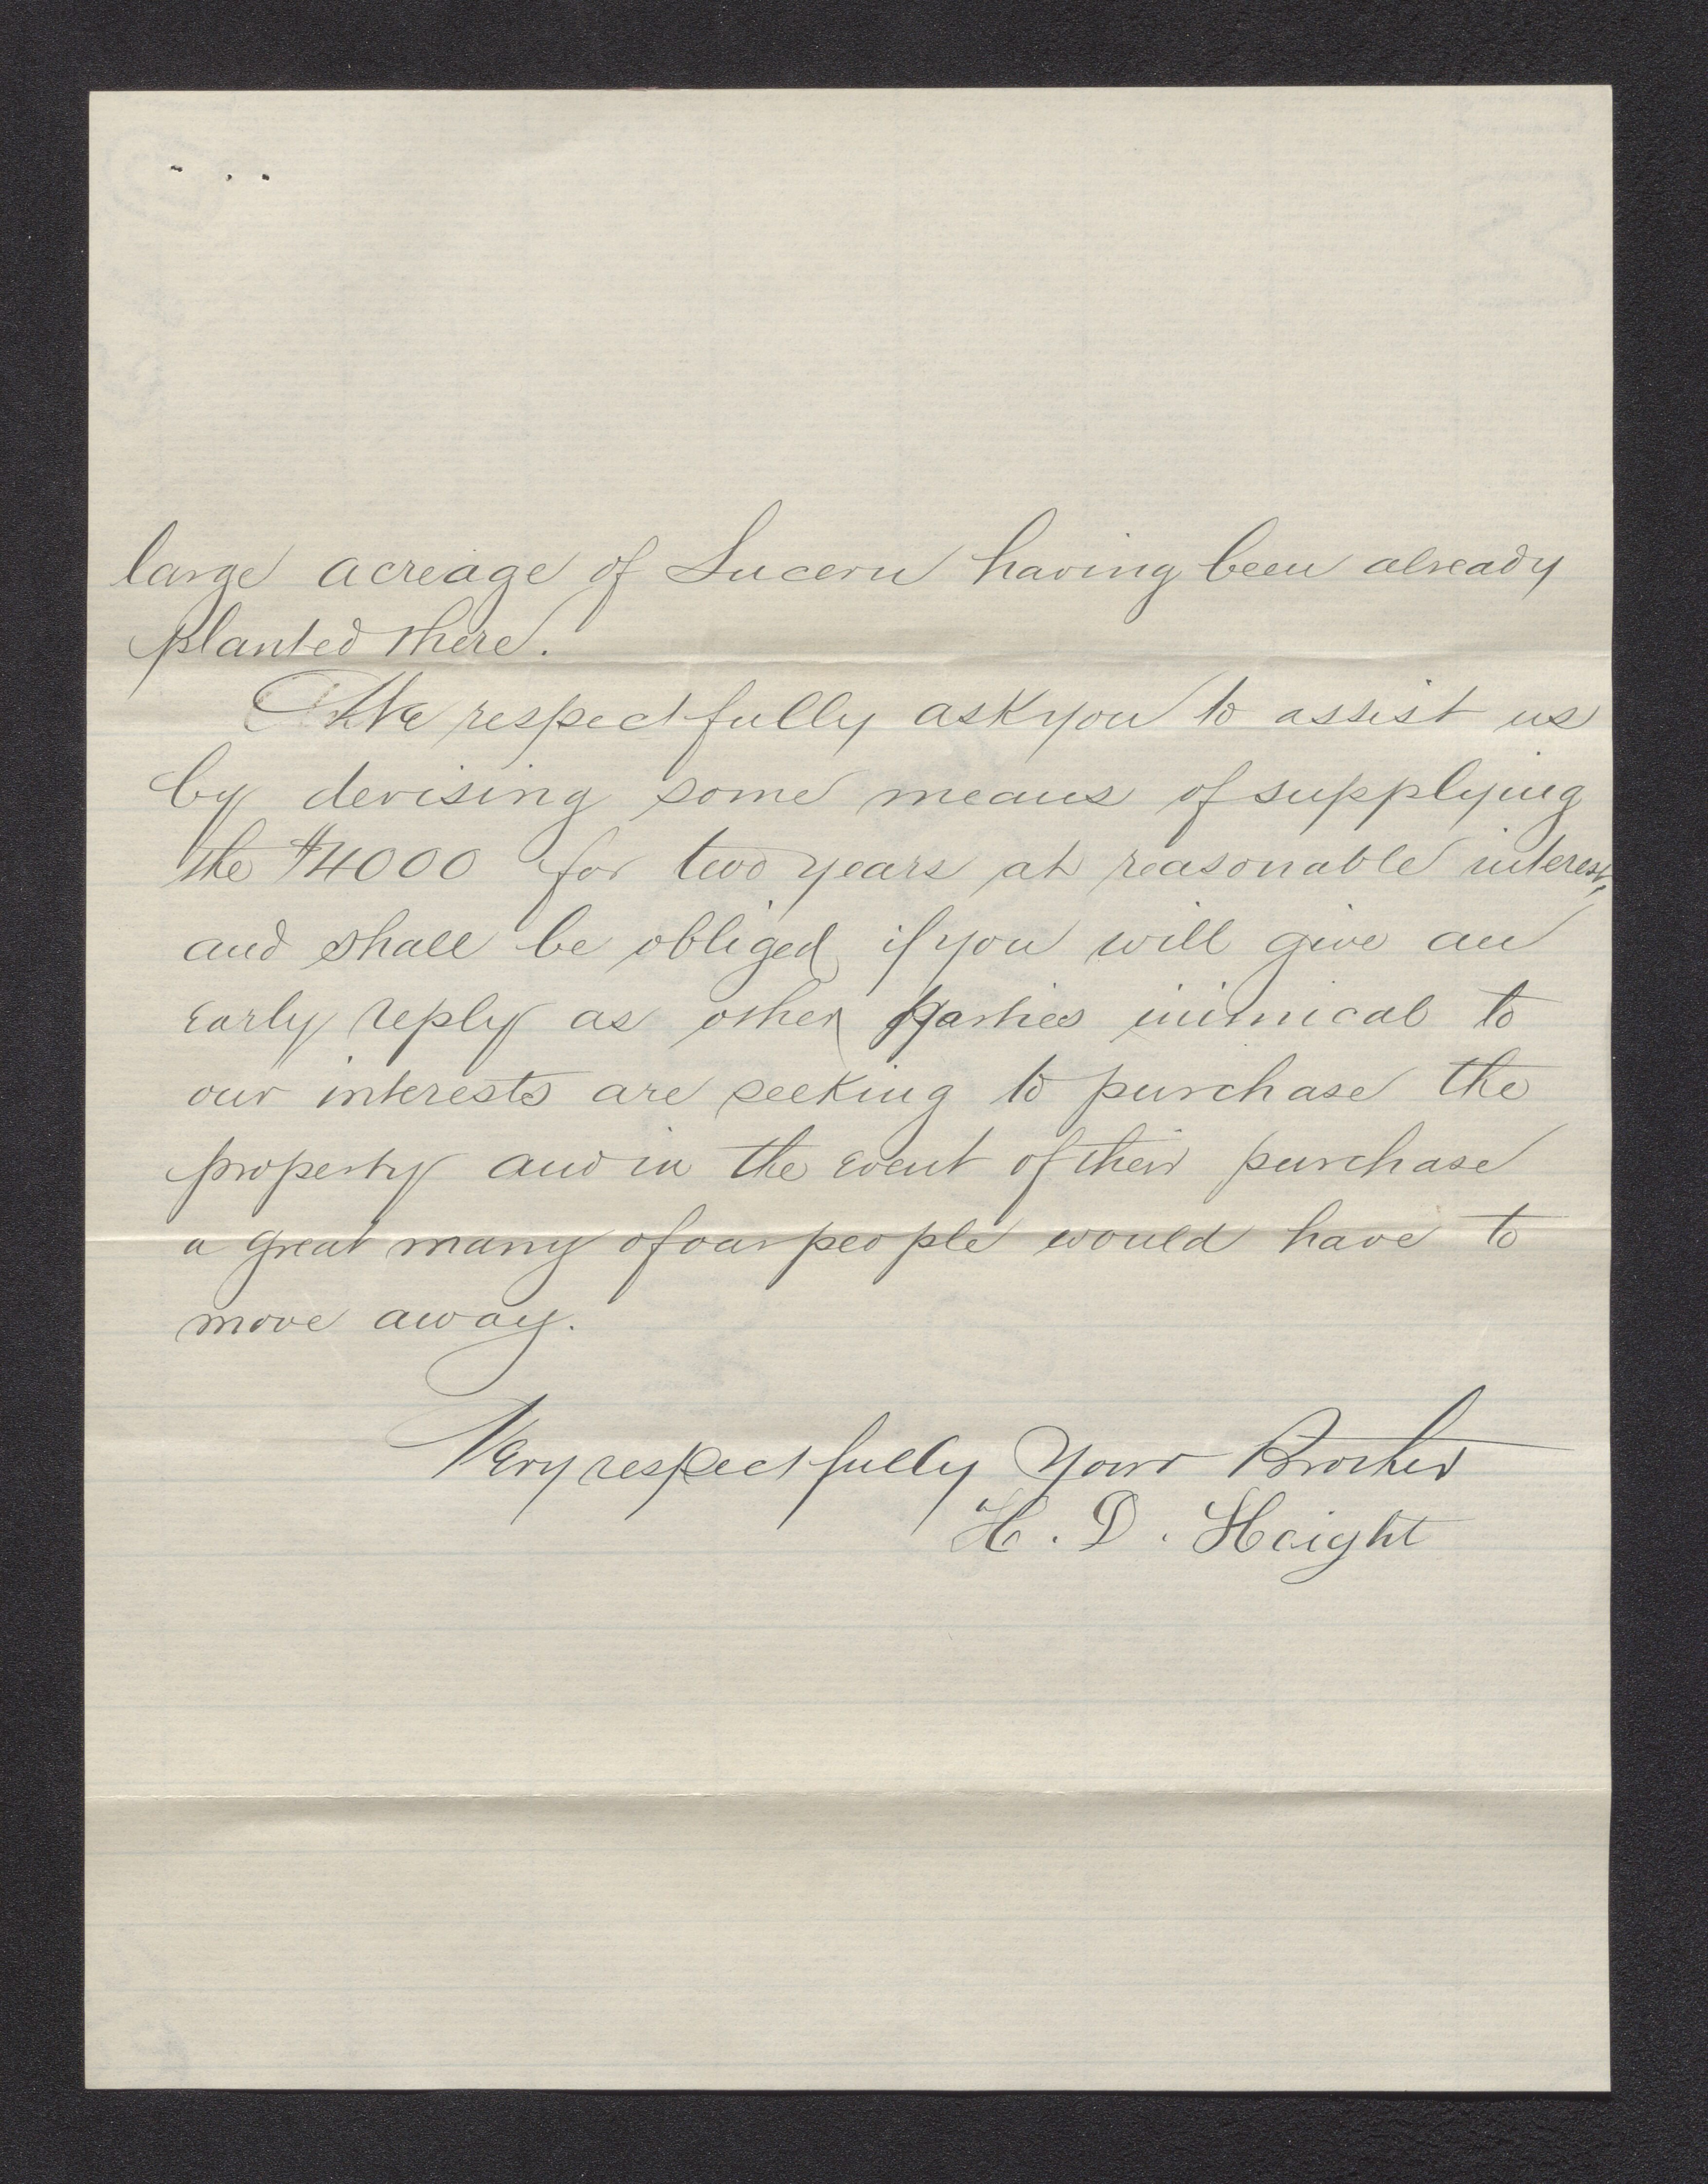 large acreage of Lucern having been already
planted there.
We respectfully ask you to assist us
by devising some means of supplying
the $4000 for two years at reasonable interest,
and shall be obliged if you will give an
early reply as other parties inimical to
our interests are seeking to purchase the
property and in the event of their purchase
a great many of our people would have to
move away.
Very respectfully Your Brother
H. D. Haight